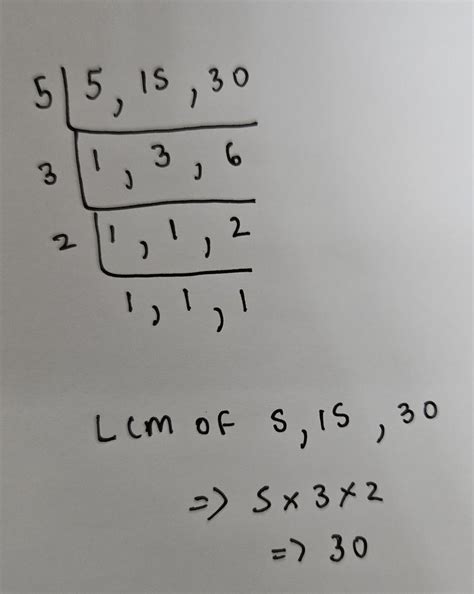 5 | 5, 15, 30
3 | 1, 3, 6
2 | 1, 1, 2
1, 1, 1
LCM OF 5, 15, 30
=> 5 × 3 × 2
=> 30